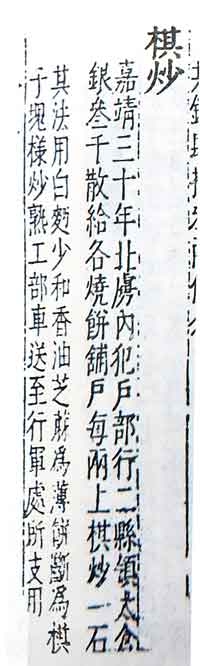 棋炒
嘉靖三十年北虜內犯戶部行二縣領太倉
銀叁千散給各燒餅舖戶每兩上棋炒一石
其法用白麪少和香油芝蔴為薄餅斷為棋
子塊樣炒熟工部車送至行軍處所支用